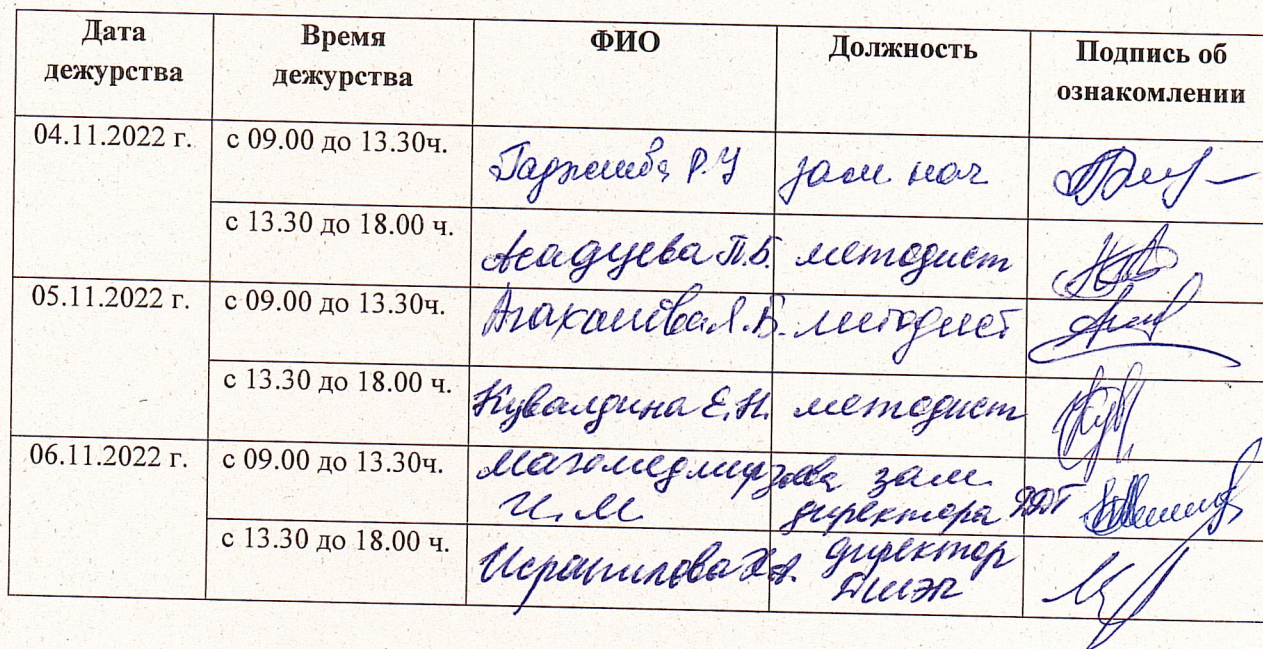 Дата дежурства Время дежурства ФИО Должность Подпись об ознакомлении
04.11.2022 г. с 09.00 до 13.30ч. Гаджиева Р.У зам нач
с 13.30 до 18.00 ч. Асадуева П.Б. методист
05.11.2022 г. с 09.00 до 13.30ч. Агаханова Я.Б. методист
с 13.30 до 18.00 ч. Кувалдина Е.Н. методист
06.11.2022 г. с 09.00 до 13.30ч. Магомедмирзоева зам.
И.М директора ДДТ
с 13.30 до 18.00 ч. Исрапилова Х.А. директор